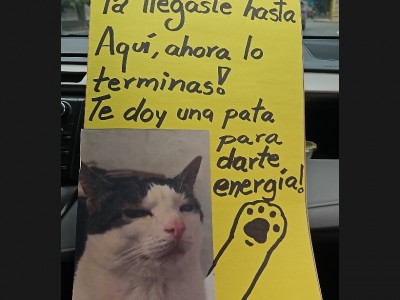 Ya llegaste hasta
Aquí, ahora lo
terminas!
Te doy una pata
para
darte
energía!